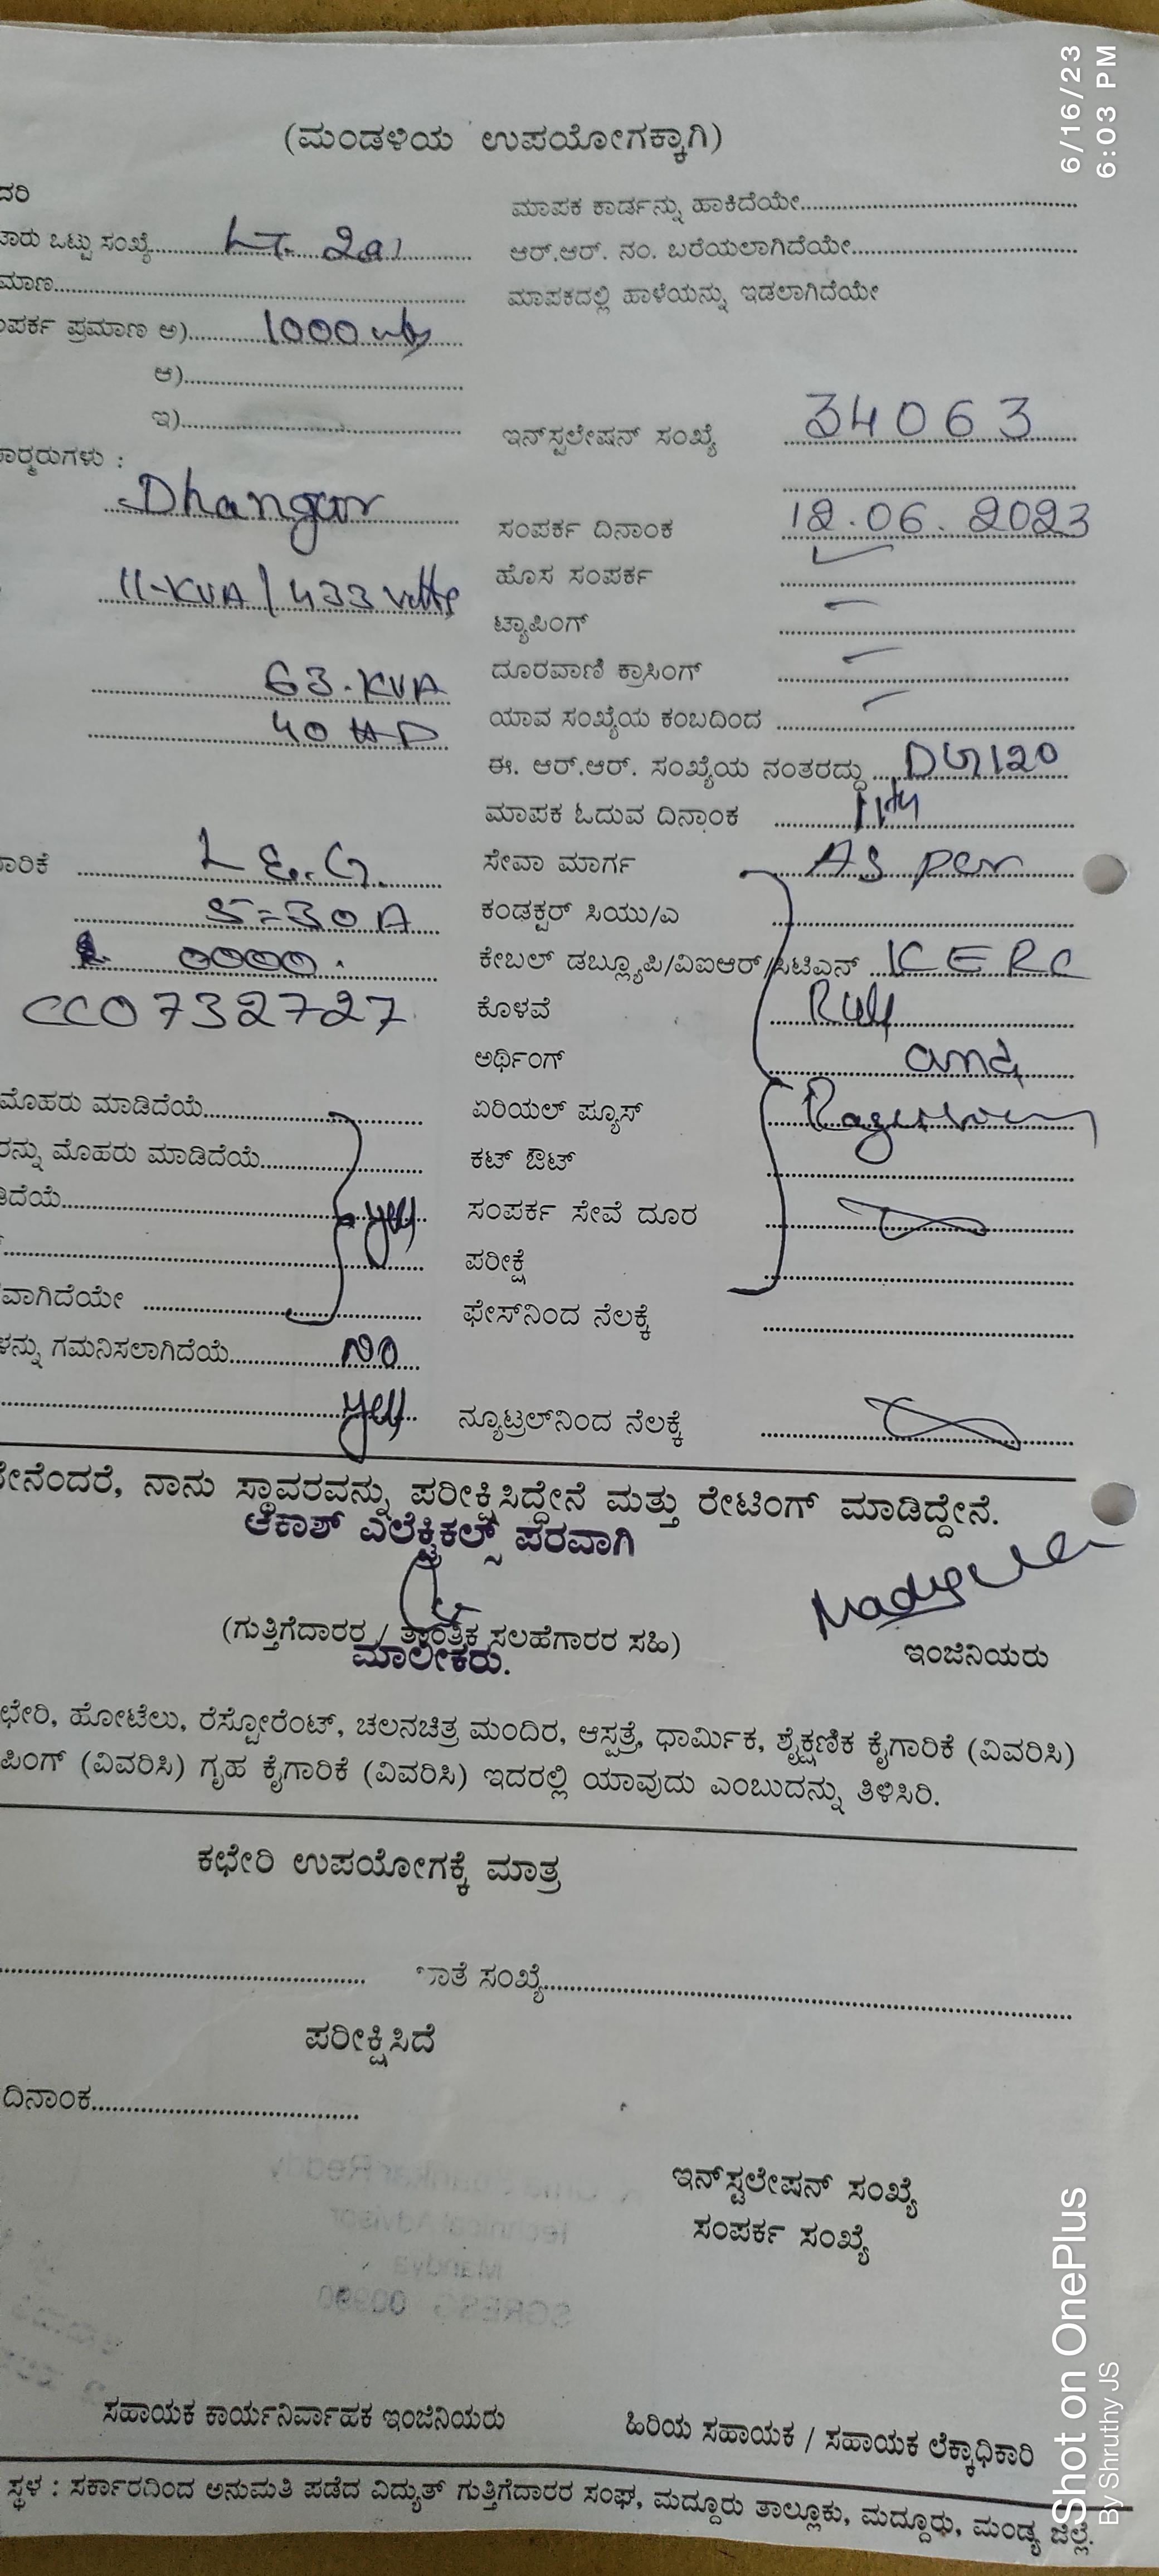 6/16/23
6:03 PM
(ಮಂಡಳಿಯ ಉಪಯೋಗಕ್ಕಾಗಿ)
ದರಿ
ಮಾಪಕ ಕಾರ್ಡನ್ನು ಹಾಕಿದೆಯೇ
ಒಟ್ಟು ಸಂಖ್ಯೆ
ಆರ್.ಆರ್. ನಂ. ಬರೆಯಲಾಗಿದೆಯೇ
ಮಾಣ
ಮಾಪಕದಲ್ಲಿ ಹಾಳೆಯನ್ನು ಇಡಲಾಗಿದೆಯೇ
ಪರ್ಕ ಪ್ರಮಾಣ ಅ) 1000
ಆ)
ಇ)
ಇನ್‌ಸ್ಟಲೇಷನ್ ಸಂಖ್ಯೆ 34063
ಾರ್‍ಮರುಗಳು :
Dhangur
ಸಂಪರ್ಕ ದಿನಾಂಕ 12.06.2023
11-KVA / 433 volts
ಹೊಸ ಸಂಪರ್ಕ
ಟ್ಯಾಪಿಂಗ್
63.KVA
ದೂರವಾಣಿ ಕ್ರಾಸಿಂಗ್
40 HP
ಯಾವ ಸಂಖ್ಯೆಯ ಕಂಬದಿಂದ
ಈ. ಆರ್.ಆರ್. ಸಂಖ್ಯೆಯ ನಂತರದ್ದು DG120
ಮಾಪಕ ಓದುವ ದಿನಾಂಕ 11th
ಾರಿಕೆ L & G.
ಸೇವಾ ಮಾರ್ಗ As per
5=30A
ಕಂಡಕ್ಟರ್ ಸಿಯು/ಎ
0000.
ಕೇಬಲ್ ಡಬ್ಲ್ಯೂಪಿ/ವಿಐಆರ್/ಸಿಟಿಎಸ್ KERC
CC0732727
ಕೊಳವೆ Rule
ಅರ್ಥಿಂಗ್ and
ಮೊಹರು ಮಾಡಿದೆಯೆ
ಏರಿಯಲ್ ಪ್ಯೂಸ್
ರನ್ನು ಮೊಹರು ಮಾಡಿದೆಯೆ
ಕಟ್ ಔಟ್
ಡಿದೆಯೆ yes
ಸಂಪರ್ಕ ಸೇವೆ ದೂರ
ಪರೀಕ್ಷೆ
ವಾಗಿದೆಯೇ
ಫೇಸ್‌ನಿಂದ ನೆಲಕ್ಕೆ
ಳನ್ನು ಗಮನಿಸಲಾಗಿದೆಯೆ No
yes
ನ್ಯೂಟ್ರಲ್‌ನಿಂದ ನೆಲಕ್ಕೆ
ೇನೆಂದರೆ, ನಾನು ಸ್ಥಾವರವನ್ನು ಪರೀಕ್ಷಿಸಿದ್ದೇನೆ ಮತ್ತು ರೇಟಿಂಗ್ ಮಾಡಿದ್ದೇನೆ.
ಆಕಾಶ್ ಎಲೆಕ್ಟ್ರಿಕಲ್ಸ್ ಪರವಾಗಿ
(ಗುತ್ತಿಗೆದಾರರ / ತಾಂತ್ರಿಕ ಸಲಹೆಗಾರರ ಸಹಿ)
ಮಾಲೀಕರು.
ಇಂಜಿನಿಯರು
ಛೇರಿ, ಹೋಟೆಲು, ರೆಸ್ಟೋರೆಂಟ್, ಚಲನಚಿತ್ರ ಮಂದಿರ, ಆಸ್ಪತ್ರೆ, ಧಾರ್ಮಿಕ, ಶೈಕ್ಷಣಿಕ ಕೈಗಾರಿಕೆ (ವಿವರಿಸಿ)
ಪಿಂಗ್ (ವಿವರಿಸಿ) ಗೃಹ ಕೈಗಾರಿಕೆ (ವಿವರಿಸಿ) ಇದರಲ್ಲಿ ಯಾವುದು ಎಂಬುದನ್ನು ತಿಳಿಸಿರಿ.
ಕಛೇರಿ ಉಪಯೋಗಕ್ಕೆ ಮಾತ್ರ
ಾತೆ ಸಂಖ್ಯೆ
ಪರೀಕ್ಷಿಸಿದೆ
ದಿನಾಂಕ
ಇನ್‌ಸ್ಟಲೇಷನ್ ಸಂಖ್ಯೆ
ಸಂಪರ್ಕ ಸಂಖ್ಯೆ
ಸಹಾಯಕ ಕಾರ್ಯನಿರ್ವಾಹಕ ಇಂಜಿನಿಯರು
ಹಿರಿಯ ಸಹಾಯಕ / ಸಹಾಯಕ ಲೆಕ್ಕಾಧಿಕಾರಿ
ಸ್ಥಳ : ಸರ್ಕಾರದಿಂದ ಅನುಮತಿ ಪಡೆದ ವಿದ್ಯುತ್ ಗುತ್ತಿಗೆದಾರರ ಸಂಘ, ಮದ್ದೂರು ತಾಲ್ಲೂಕು, ಮದ್ದೂರು, ಮಂಡ್ಯ ಜಿಲ್ಲೆ.
Shot on OnePlus
By Shruthy JS